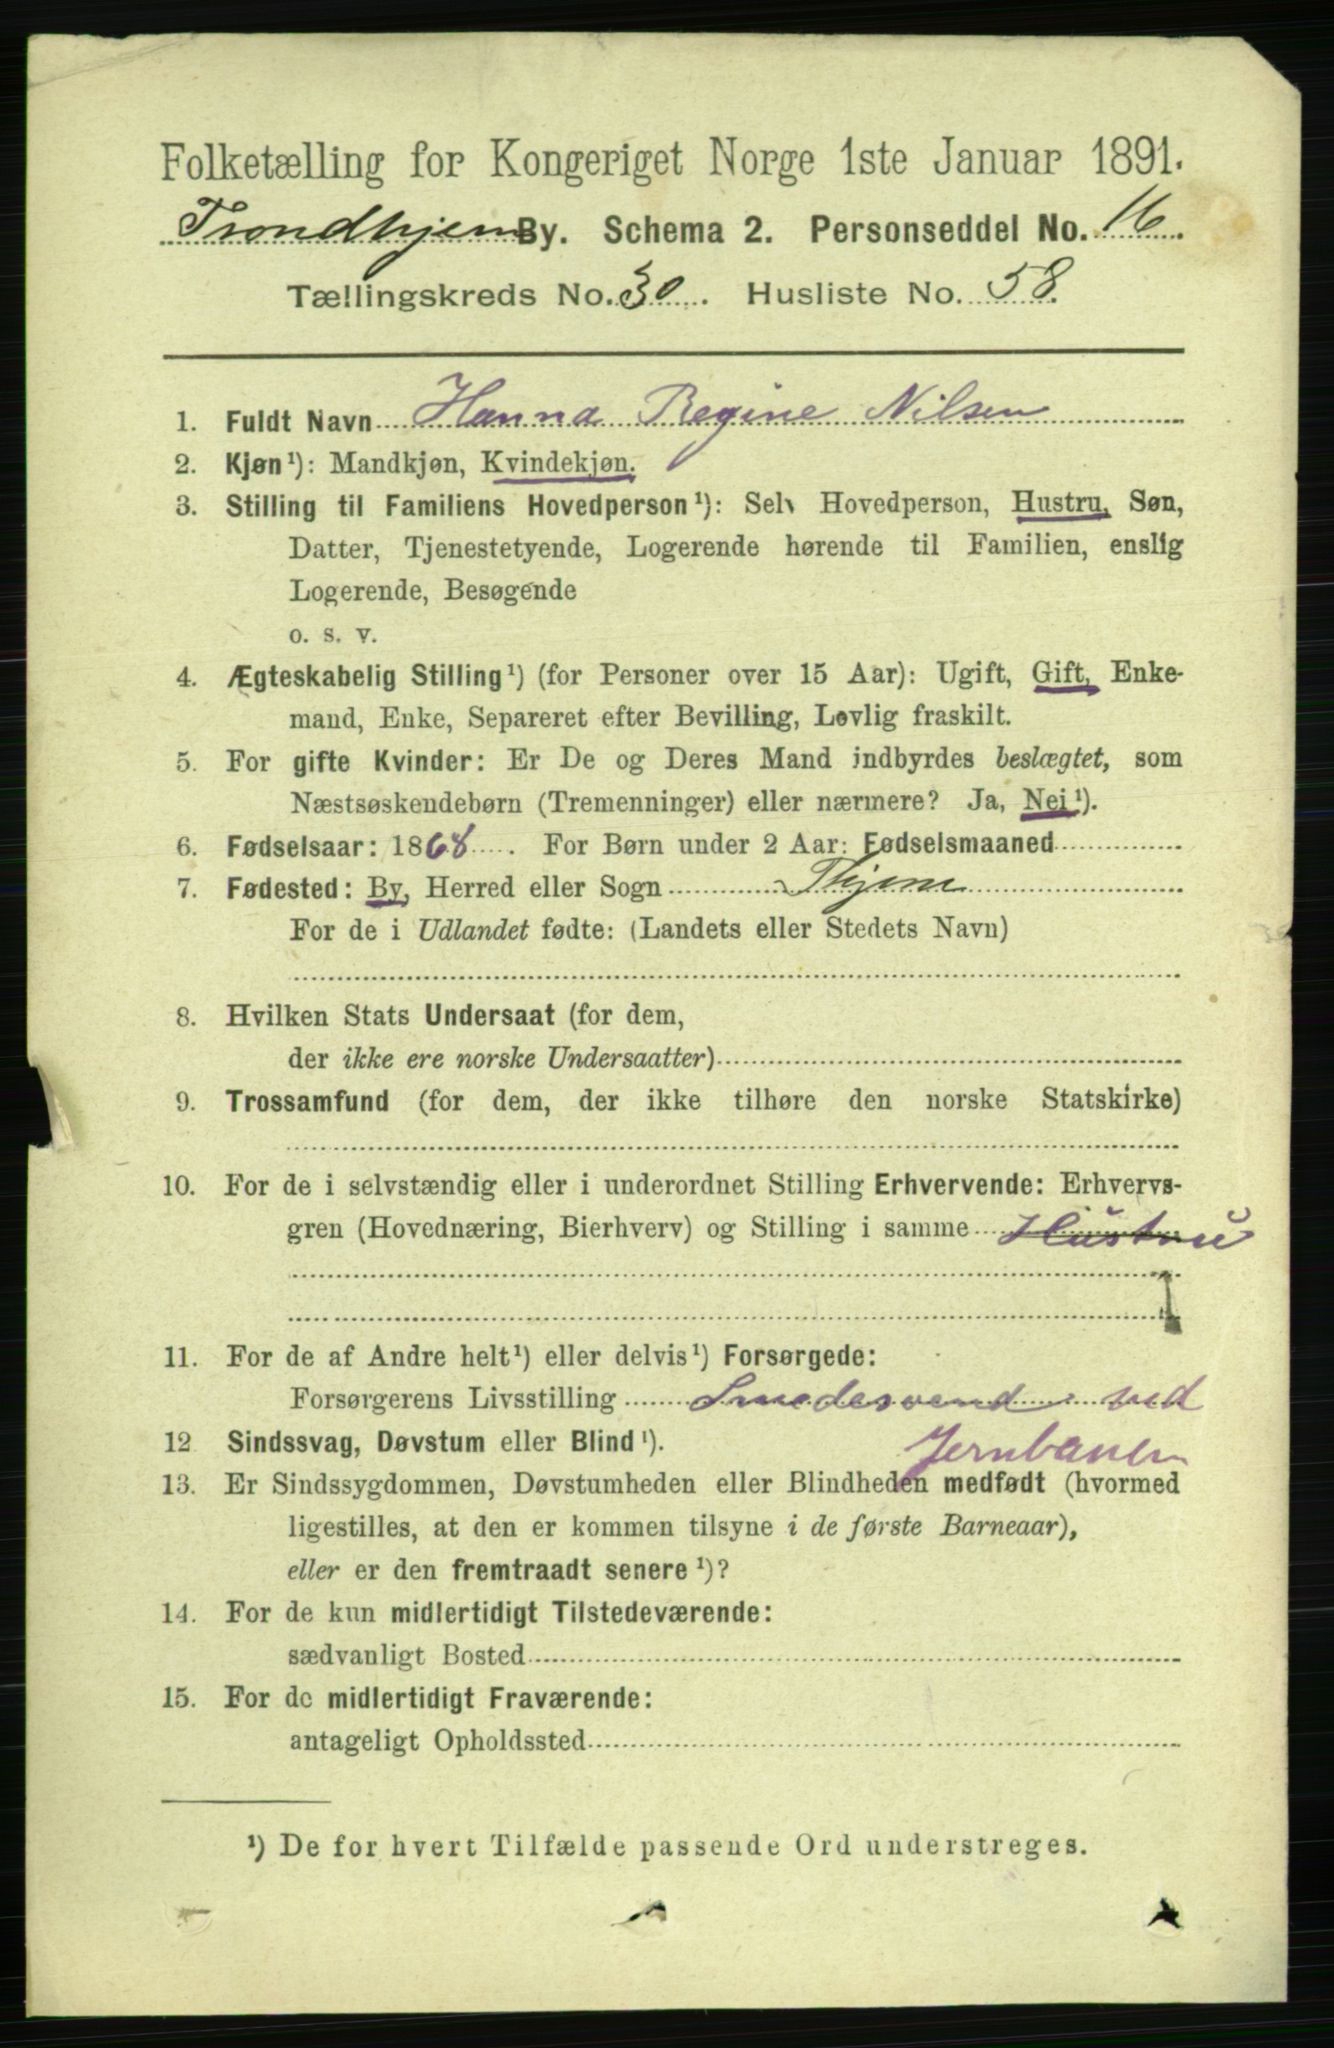 Folketælling for Kongeriget Norge 1ste Januar 1891.
Trondhjem By. Schema 2. Personseddel No. 16.
Tællingskreds No. 30. Husliste No. 58.
1. Fuldt Navn Hanna Regine Nilsen
2. Kjøn¹): Mandkjøn, Kvindekjøn.
3. Stilling til Familiens Hovedperson¹): Selv Hovedperson, Hustru, Søn,
Datter, Tjenestetyende, Logerende hørende til Familien, enslig
Logerende, Besøgende
o. s. v.
4. Ægteskabelig Stilling¹) (for Personer over 15 Aar): Ugift, Gift, Enke-
mand, Enke, Separeret efter Bevilling, Lovlig fraskilt.
5. For gifte Kvinder: Er De og Deres Mand indbyrdes beslægtet, som
Næstsøskendebørn (Tremenninger) eller nærmere? Ja, Nei¹).
6. Fødselsaar: 1868. For Børn under 2 Aar: Fødselsmaaned
7. Fødested: By, Herred eller Sogn Thjem
For de i Udlandet fødte: (Landets eller Stedets Navn)
8. Hvilken Stats Undersaat (for dem,
der ikke ere norske Undersaatter)
9. Trossamfund (for dem, der ikke tilhøre den norske Statskirke)
10. For de i selvstændig eller i underordnet Stilling Erhvervende: Erhvervs-
gren (Hovednæring, Bierhverv) og Stilling i samme Hustru
11. For de af Andre helt¹) eller delvis¹) Forsørgede:
Forsørgerens Livsstilling Smedesvend ved
Jernbanen
12 Sindssvag, Døvstum eller Blind¹).
13. Er Sindssygdommen, Døvstumheden eller Blindheden medfødt (hvormed
ligestilles, at den er kommen tilsyne i de første Barneaar),
eller er den fremtraadt senere¹)?
14. For de kun midlertidigt Tilstedeværende:
sædvanligt Bosted
15. For de midlertidigt Fraværende:
antageligt Opholdssted
¹) De for hvert Tilfælde passende Ord understreges.